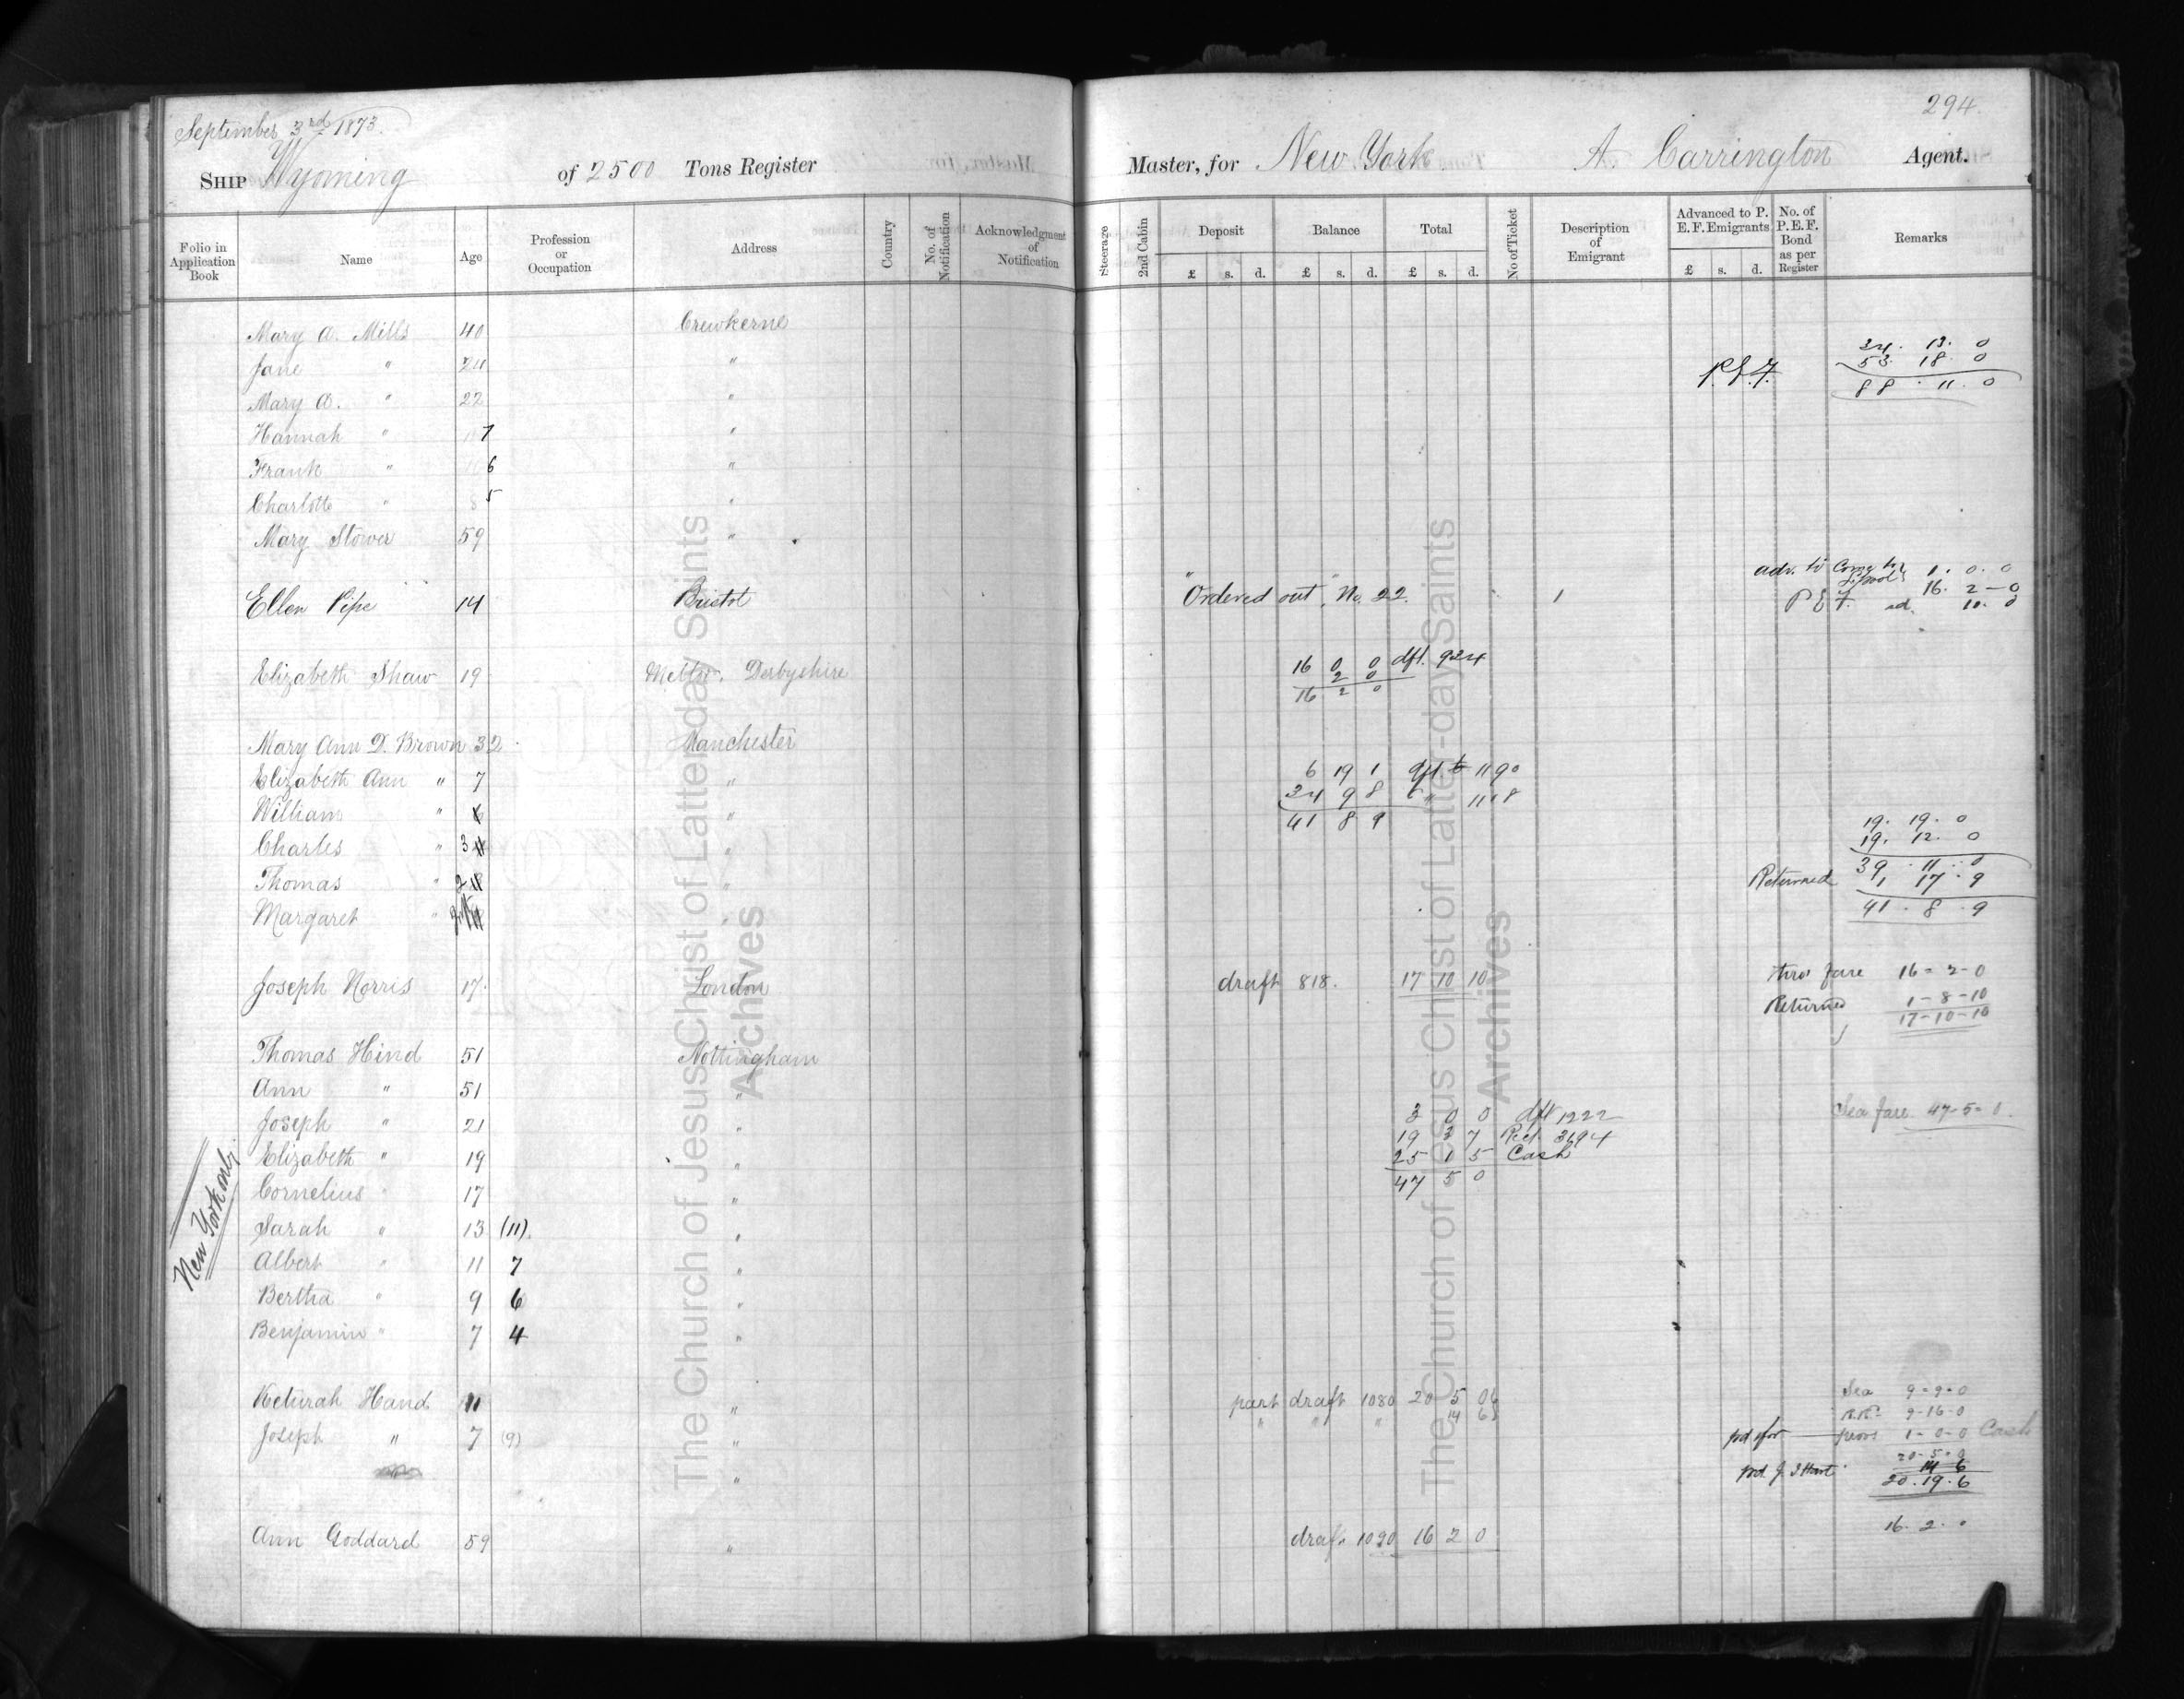 294.
September 3rd 1873.
SHIP Wyoming of 2500 Tons Register Master, for New York A. Carrington Agent.
Folio in Application Book Name Age Profession or Occupation Address Country No. of Notification Acknowledgment of Notification Steerage 2nd Cabin Deposit Balance Total No of Ticket Description of Emigrant Advanced to P. E. F. Emigrants No. of P. E. F. Bond as per Register Remarks
£ s. d. £ s. d. £ s. d. £ s. d.
Mary A. Mills 40 Crewkerne
34. 13. 0
Jane " 24 " P.E.F. 53 18. 0
88. 11. 0
Mary A. " 22 "
Hannah " 7 "
Frank " 6 "
Charlotte " 8 5 "
Mary Stower 59 "
adv. to 1. 0. 0
16. 2 - 0
Ellen Pipe 14 Bristol "Ordered out" No. 22. 1 P E F. ad. 11. 0
16 0 0 dft. 924
Elizabeth Shaw 19 Derbyshire 2 0
16 2 0
Mary Ann D. Brown 32 Manchester
Elizabeth Ann " 7 " 6 19 1 dft 1190
William " 6 " 34 9 8 " 1118
41 8 9 19. 19. 0
Charles " 3 " 19. 12. 0
39. 11. 0
Thomas " 2 " Returned 1 17. 9
Margaret " " 41. 8. 9
Joseph Norris 17 London draft 818. 17 10 10 thro' fare 16 - 2 - 0
Returned 1 - 8 - 10
17 - 10 - 10
Thomas Hind 51 Nottingham
Ann " 51 "
3 0 0 dft 1222 Sea fare 47 - 5 - 0.
Joseph " 21 " 19 3 7 Rect. 3694
Elizabeth " 19 " 25 1 5 Cash
47 5 0
Cornelius " 17 "
New York only
Sarah " 13 (11). "
Albert " 11 7 "
Bertha " 9 6 "
Benjamin " 7 4 "
Keturah Hand 11 " part draft 1080 20 5 0 Sea 9 - 9 - 0
" " " 14 6 R.R. 9 - 16 - 0
Joseph " 7 (9) " pd for provs 1 - 0 - 0 Cash
20 - 5 - 0
" pd. J. 14 6
20. 19. 6
Ann Goddard 59 " draft 1020 16 2 0 16. 2. 0
The Church of Jesus Christ of Latter-day Saints
Archives
The Church of Jesus Christ of Latter-day Saints
Archives